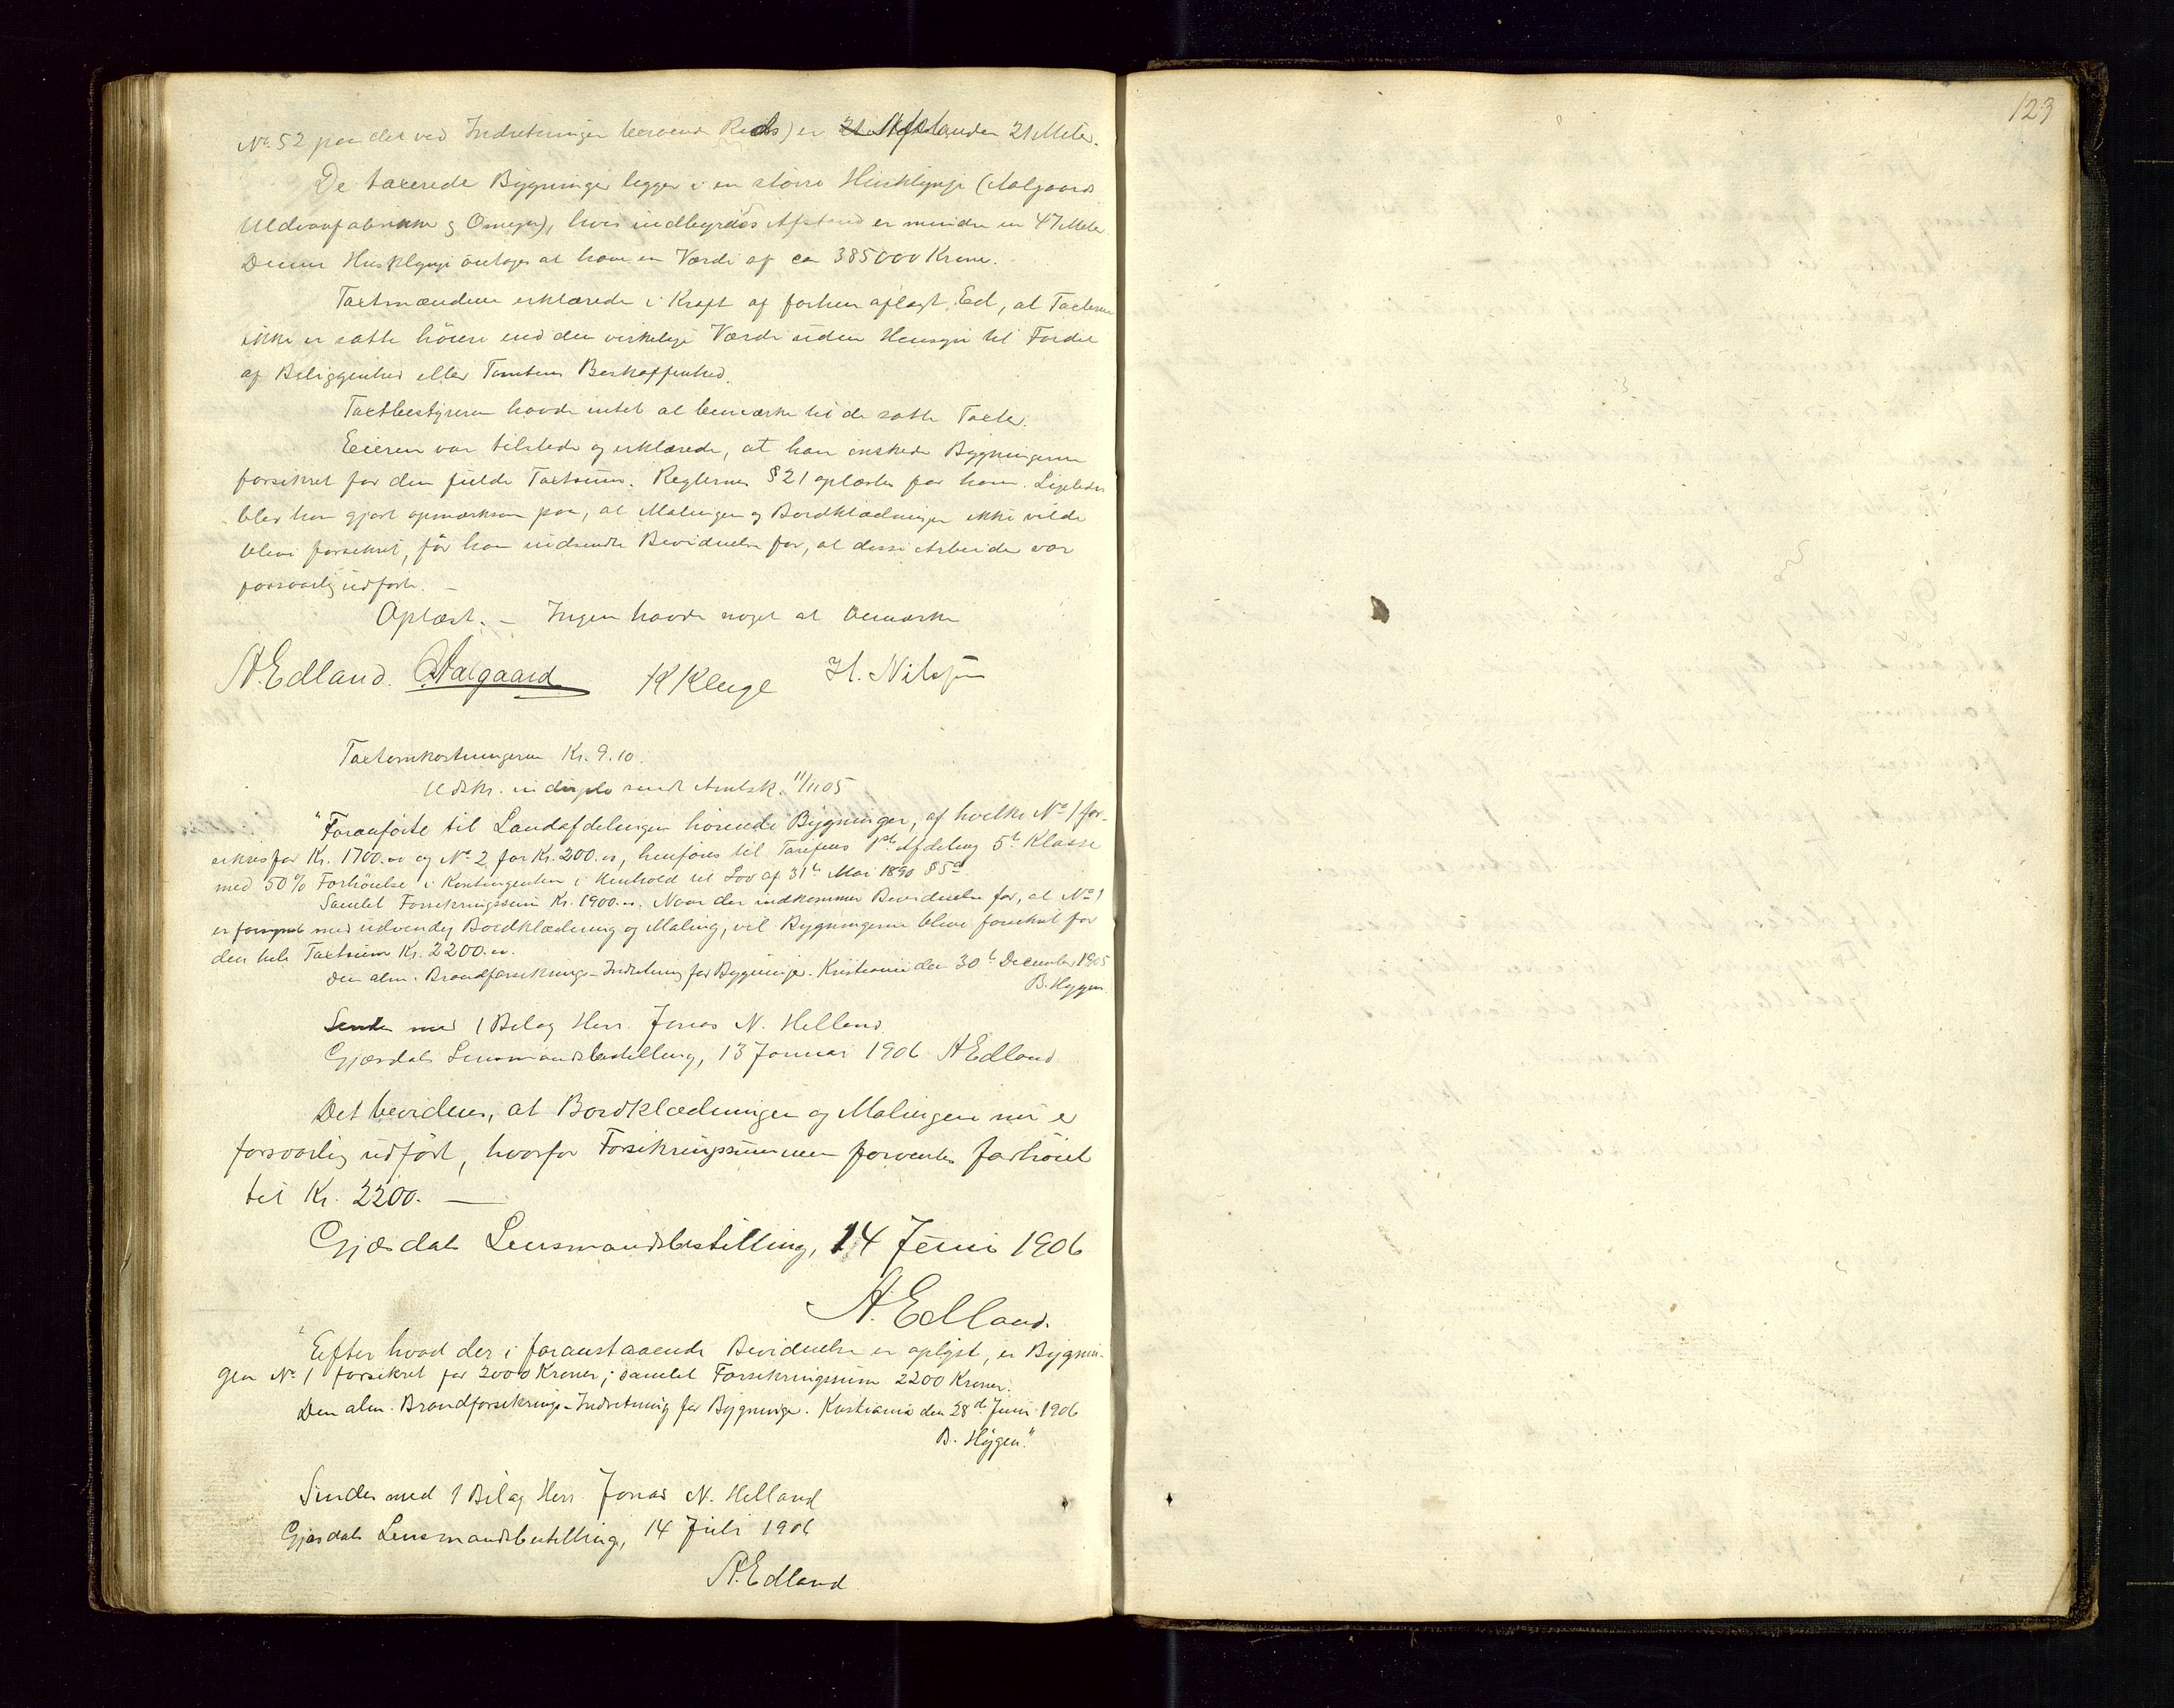 No. 52 paa det ved Indretningen beroende Rids) er 21 Afstanden 21 Meter.
De taxerede Bygninger ligger i en større Husklynge (Aalgaards
Uldvarefabrikker & Omegn), hvis indbyrdes Afstand er mindre en 47 Meter.
Denne Husklynge antages at have en Værdi af ca 385000 Kroner.
Taxtmændene erklærede i Kraft af forhen aflagt Ed, at Taxterne
ikke er satte høiere end den virkelige Værdi uden Hensyn til Fordel
af Beliggenhed eller Tomtens Beskaffenhed.
Taxtbestyreren havde intet at bemærke til de satte Taxter.
Eieren var tilstede og erklærede, at han ønskede Bygningerne
forsikret for den fulde Taxtsum. Reglernes § 21 oplæstes for ham. Ligeledes
blev han gjort opmærksom paa, at Malingen og Bordklædningen ikke vilde
blive forsikret, før han indsendte Bevidnelse for, at disse Arbeider var
forsvarlig udført. –
Oplæst. – Ingen havde noget at bemærke
A. Edland. O. Aalgaard K Kluge H. Nilsen
Taxtomkostningerne Kr. 9.10.
Udskr. in duplo sendt Amtsk. 11/11 05
"Foranførte til Landafdelingen hørende Bygninger, af hvilke No 1 for-
sikres for Kr. 1700.00 og No 2 for Kr. 200.00, henføres til Tarifens 1ste Afdeling 5te Klasse
med 50% Forhøielse i Kontingenten i Henhold til Lov af 31te Mai 1890 § 5d
Samlet Forsikringssum Kr. 1900.00. Naar der indkommer Bevidnelse for, at No 1
er forsynet med udvendig Bordklædning og Maling, vil Bygningerne blive forsikret for
den hele Taxtsum Kr. 2200.00.
Den alm. Brandforsikrings-Indretning for Bygninger. Kristiania den 30te December 1905
B. Hygen
Sendes med 1 Bilag Herr. Jonas N. Helland.
Gjæsdals Lensmandsbestilling, 13 Januar 1906 A Edland
Det bevidnes, at Bordklædningen og Malingen nu er
forsvarlig udført, hvorfor Forsikringssummen forventes forhøiet
til Kr. 2200. —
Gjæsdals Lensmandsbestilling, 14 Juni 1906
A. Edland.
"Efter hvad der i foranstaaende Bevidnelse er oplyst, er Bygnin-
gen No 1 forsikret for 2000 Kroner; samlet Forsikringssum 2200 Kroner.
Den alm. Brandforsikrings-Indretning for Bygninger. Kristiania den 28de Juni 1906
B. Hygen."
Sendes med 1 Bilag Herr. Jonas N. Helland
Gjæsdals Lensmandsbestilling, 14 Juli 1906
A. Edland
123